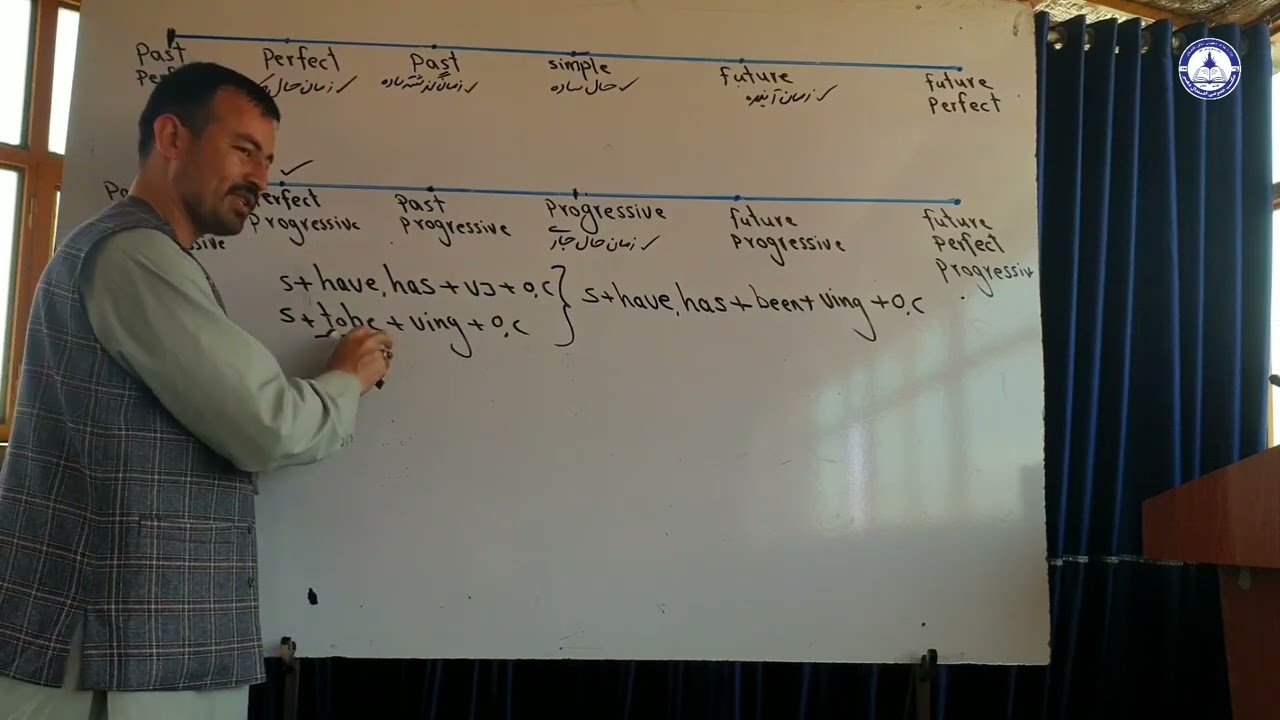 Past Perfect Past simple future future
Perfect Perfect
زمان حال زمان گذشته ساده حال ساده زمان آینده
Perfect Past Progressive future future
Progressive Progressive زمان حال جاری Progressive Perfect
Progressiv
s+have,has+v3+o,c
s+tobe+ving+o,c
s+have,has+been+ving+o,c